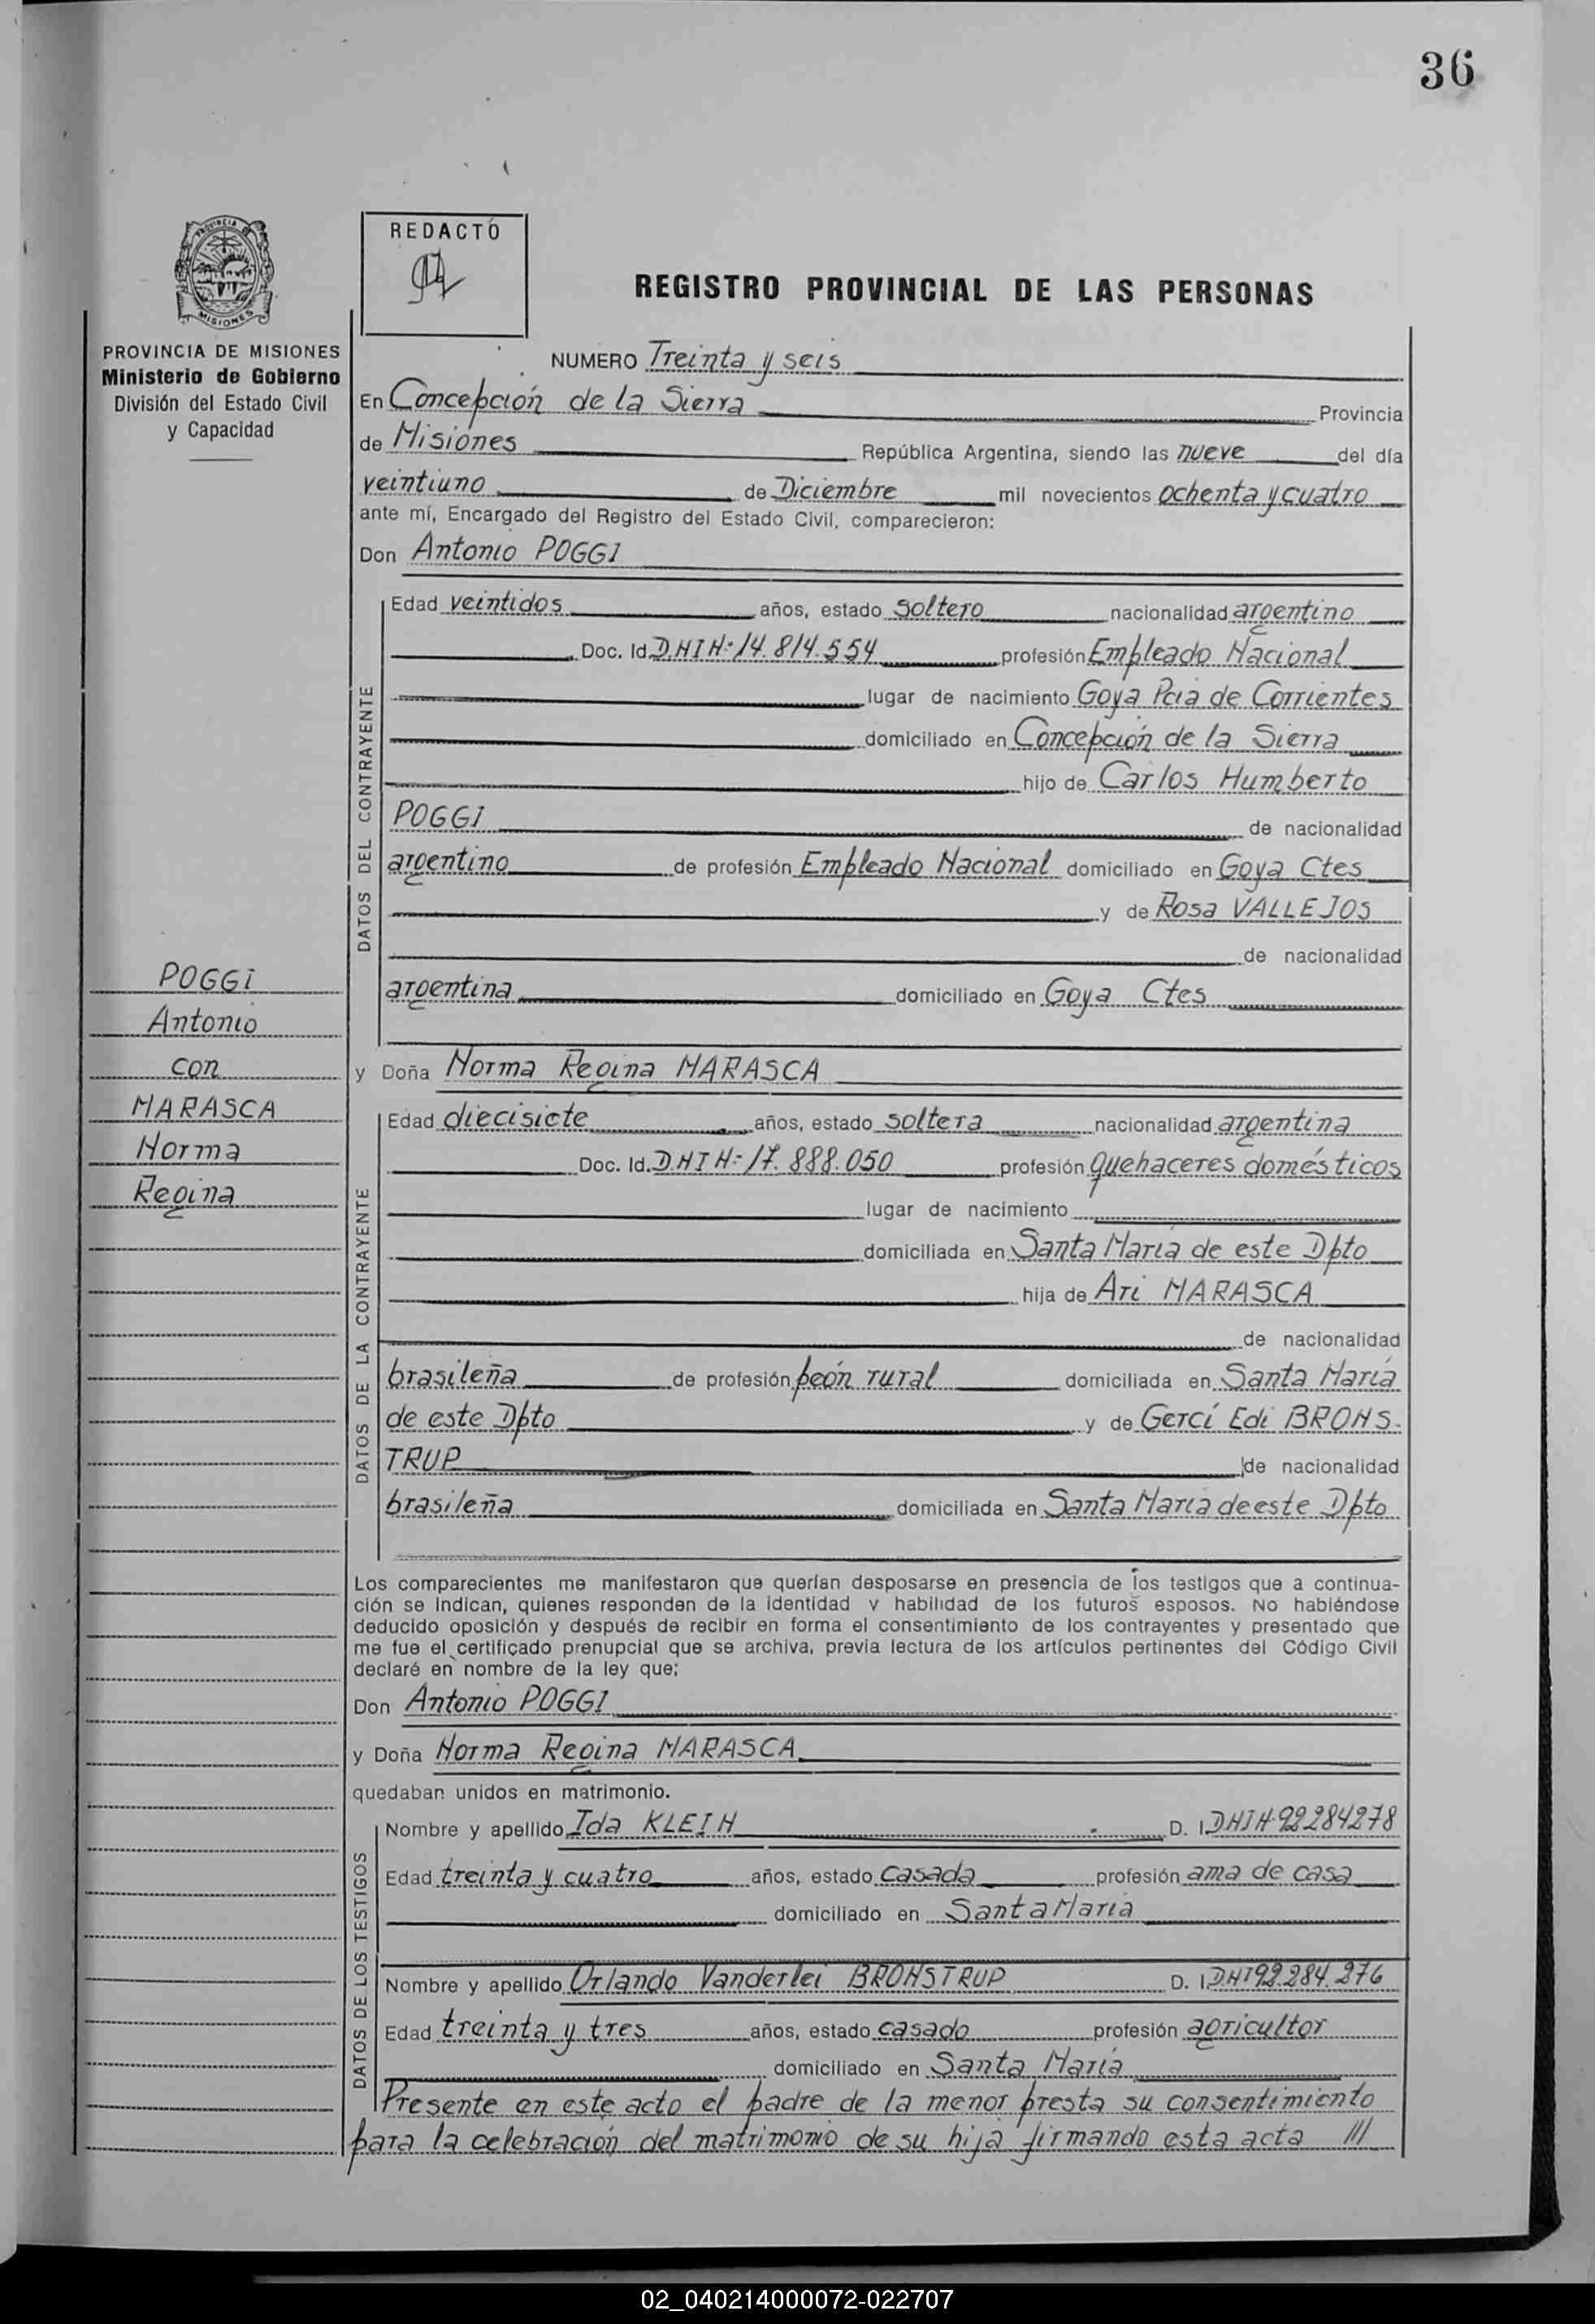 36
REDACTÓ
REGISTRO PROVINCIAL DE LAS PERSONAS
PROVINCIA DE MISIONES
Ministerio de Gobierno
División del Estado Civil
y Capacidad
NUMERO Treinta y seis
En Concepción de la Sierra Provincia
de Misiones República Argentina, siendo las nueve del día
veintiuno de Diciembre mil novecientos ochenta y cuatro
ante mí, Encargado del Registro del Estado Civil, comparecieron:
Don Antonio POGGI
DATOS DEL CONTRAYENTE
Edad veintidos años, estado soltero nacionalidad argentino
Doc. Id. DNI N:- 14.814.554 profesión Empleado Nacional
lugar de nacimiento Goya Pcia de Corrientes
domiciliado en Concepción de la Sierra
hijo de Carlos Humberto
POGGI de nacionalidad
argentino de profesión Empleado Nacional domiciliado en Goya Ctes
y de Rosa VALLEJOS
de nacionalidad
argentina domiciliado en Goya Ctes
POGGI
Antonio
con
MARASCA
Norma
Regina
y Doña Norma Regina MARASCA
DATOS DE LA CONTRAYENTE
Edad diecisiete años, estado soltera nacionalidad argentina
Doc. Id. DNI N:- 17.888.050 profesión quehaceres domésticos
lugar de nacimiento
domiciliada en Santa María de este Dpto
hija de Ari MARASCA
de nacionalidad
brasileña de profesión peón rural domiciliada en Santa María
de este Dpto y de Gercí Edi BRONS-
TRUP de nacionalidad
brasileña domiciliada en Santa María de este Dpto
Los comparecientes me manifestaron que querían desposarse en presencia de los testigos que a continua-
ción se indican, quienes responden de la identidad y habilidad de los futuros esposos. No habiéndose
deducido oposición y después de recibir en forma el consentimiento de los contrayentes y presentado que
me fue el certificado prenupcial que se archiva, previa lectura de los artículos pertinentes del Código Civil
declaré en nombre de la ley que;
Don Antonio POGGI
y Doña Norma Regina MARASCA
quedaban unidos en matrimonio.
DATOS DE LOS TESTIGOS
Nombre y apellido Ida KLEIN D. I. DNI N-92284278
Edad treinta y cuatro años, estado casada profesión ama de casa
domiciliado en Santa María
Nombre y apellido Orlando Vanderlei BRONSTRUP D. I. DNI 92.284.276
Edad treinta y tres años, estado casado profesión agricultor
domiciliado en Santa María
Presente en este acto el padre de la menor presta su consentimiento
para la celebración del matrimonio de su hija firmando esta acta ///
02_040214000072-022707